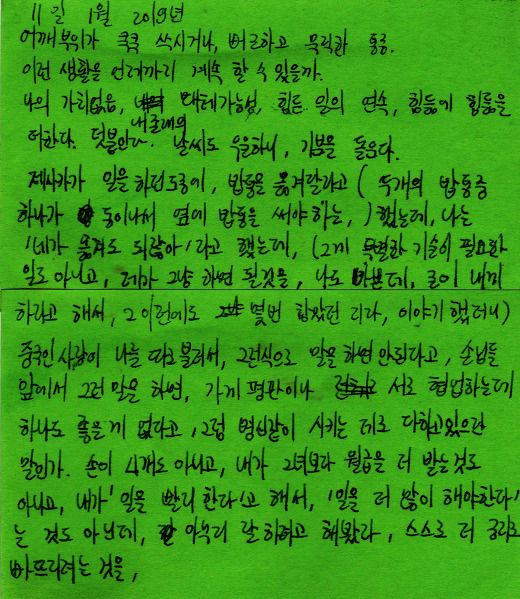 11일 1월 2019년
어깨부위가 콕콕 쑤시거나, 뻐근하고 묵직한 통증.
이런 생활을 언제까지 계속 할 수 있을까.
나의 가치없음, 대체가능성, 힘든 일의 연속, 힘듦에 힘듦을
더한다. 덧붙인다. 날씨도 우울하니, 기분을 돋운다.
제시카가 일을 하던도중에, 밥통을 옮겨달라고 ( 두개의 밥통중
하나가 동이나서 옆에 밥통을 써야하는, ) 했는데, 나는
'네가 옮겨도 되잖아' 라고 했는데, (그게 특별한 기술이 필요한
일도 아니고, 제가 그냥 하면 될것을, 나도 바쁜데, 굳이 내게
하라고 해서, 그 이전에도 몇번 참았던 터라, 이야기 했더니)
중국인사람이 나를 따로불러서, 그런식으로 말을하면 안된다고, 손님들
앞에서 그런 말을 하면, 가게 평판이나 서로 협업하는데
하나도 좋을게 없다고, 그럼 병신같이 시키는 데로 다하고있으란
말인가. 손이 4개도 아니고, 내가 그녀보다 월급을 더 받는것도
아니고, 내가 '일을 빨리 한다'고 해서, '일을 더 많이 해야한다'
는 것도 아닌데, 아무리 잘 하려고 해봤자, 스스로 더 궁지로
빠뜨리는 것을,